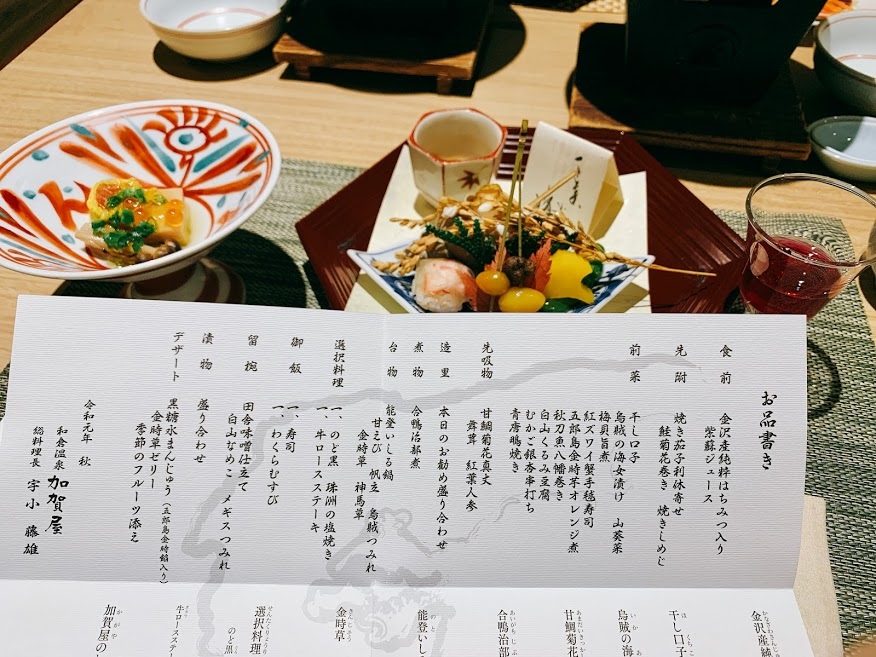 お品書き
食前
金沢産純粋はちみつ入り
紫蘇ジュース
先附
焼き茄子利休寄せ
鮭菊花巻き 焼きしめじ
前菜
干し口子
烏賊の海女漬け 山葵菜
梅貝旨煮
紅ズワイ蟹手毬寿司
五郎島金時芋オレンジ煮
秋刀魚八幡巻き
白山くるみ豆腐
むかご銀杏串打ち
青唐鴫焼き
先吸物
甘鯛菊花真丈
舞茸 紅葉人参
造里
本日のお勧め盛り合わせ
煮物
合鴨治部煮
台物
能登いしる鍋
甘えび 帆立 烏賊つみれ
金時草 神馬草
選択料理
一、のど黒 珠洲の塩焼き
一、牛ロースステーキ
御飯
一、寿司
一、わくらむすび
留椀
田舎味噌仕立て
白山なめこ メギスつみれ
漬物
盛り合わせ
デザート
黒糖水まんじゅう(五郎島金時餡入り)
金時草ゼリー
季節のフルーツ添え
令和元年 秋
和倉温泉 加賀屋
総料理長 宇小藤雄
金沢産純
干し口子
烏賊の海
甘鯛菊花
合鴨治部
能登いし
金時草
選択料理
のど黒
牛ロースステー
加賀屋の